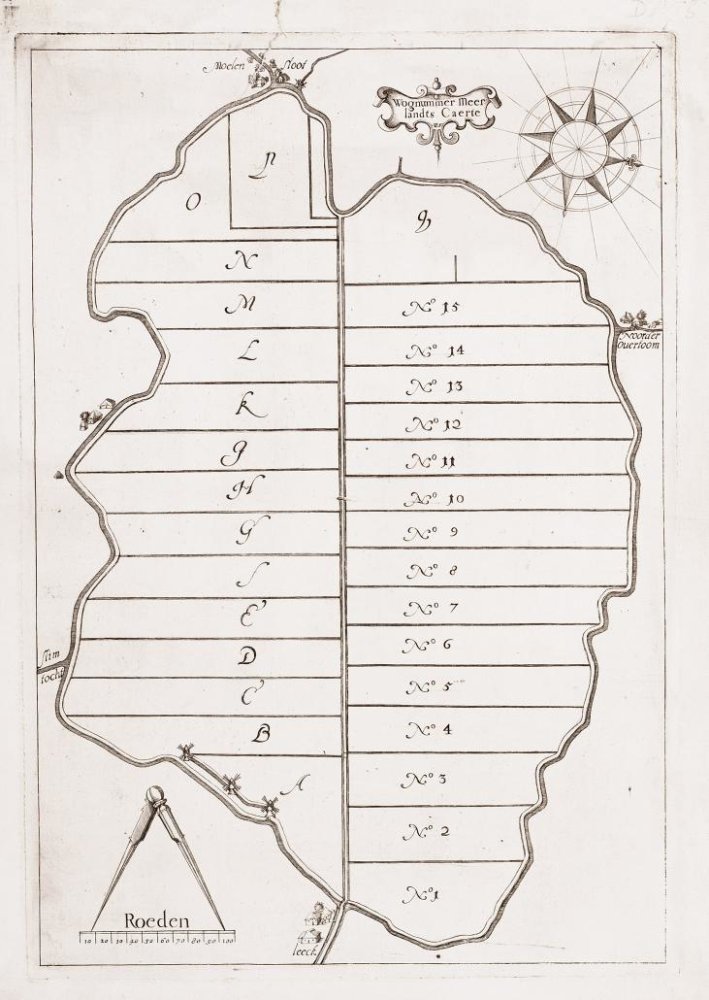 Moelen Sloot
Wognummer Meer
landts Caerte
P
O
q
N
M
L
K
J
H
G
F
E
D
C
B
A
No 15
No 14
No 13
No 12
No 11
No 10
No 9
No 8
No 7
No 6
No 5
No 4
No 3
No 2
No 1
Noorder
Ouertoom
tocht
leeck
Roeden
10 20 30 40 50 60 70 80 90 100